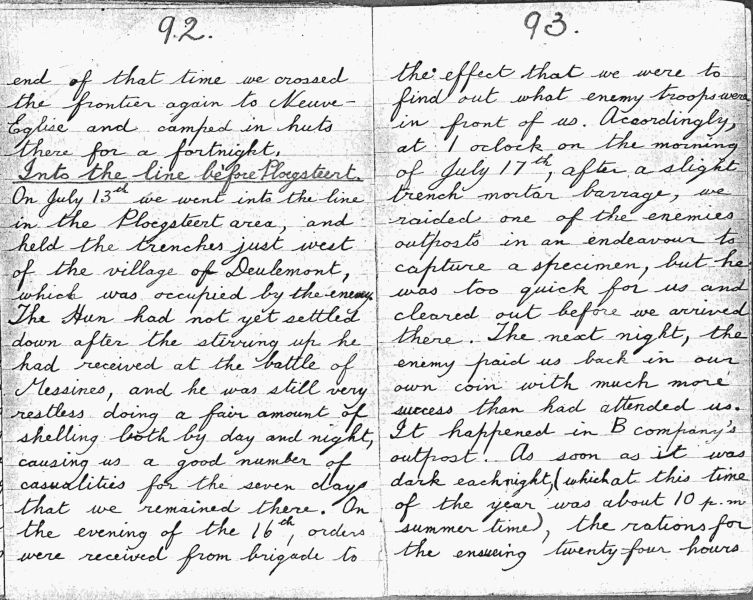 92.
end of that time we crossed
the frontier again to Neuve-
Eglise and camped in huts
there for a fortnight.
Into the line before Plogsteert.
On July 13th we went into the line
in the Plogsteert area, and
held the trenches just west
of the village of Deulemont,
which was occupied by the enemy.
The Hun had not yet settled
down after the stirring up he
had received at the battle of
Messines, and he was still very
restless doing a fair amount of
shelling both by day and night,
causing us a good number of
casualities for the seven days
that we remained there. On
the evening of the 16th, orders
were received from brigade to
93.
the effect that we were to
find out what enemy troops were
in front of us. Accordingly,
at 1 oclock on the morning
of July 17th, after a slight
trench mortar barrage, we
raided one of the enemies
outposts in an endeavour to
capture a specimen, but he
was too quick for us and
cleared out before we arrived
there. The next night, the
enemy paid us back in our
own coin with much more
success than had attended us.
It happened in B company's
outpost. As soon as it was
dark each night, (which at this time
of the year was about 10 p.m
summer time), the rations for
the ensuing twenty-four hours